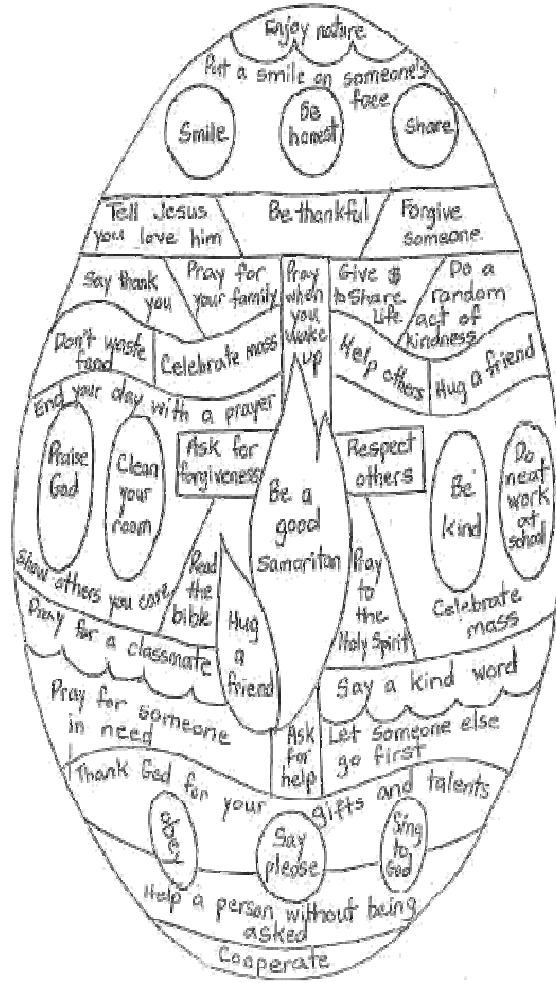 Enjoy nature
Put a smile on someone's
face
Smile
Be
honest
Share
Tell Jesus
you love him
Be thankful
Forgive
someone
Say thank
you
Pray for
your family
Pray
when
you
wake
up
Give $
to Share
Life
Do a
random
act of
kindness
Don't waste
food
Celebrate mass
Help others
Hug a friend
End your day with a prayer
Praise
God
Clean
your
room
Ask for
forgiveness
Be a
good
Samaritan
Respect
others
Be
kind
Do
neat
work
at
school
Show others you care
Read
the
bible
Hug
a
friend
Pray
to
the
Holy Spirit
Celebrate
mass
Pray for a classmate
Say a kind word
Pray for someone
in need
Ask
for
help
Let someone else
go first
Thank God for your gifts and talents
Say
please
Sing
to
God
Help a person without being
asked
Cooperate